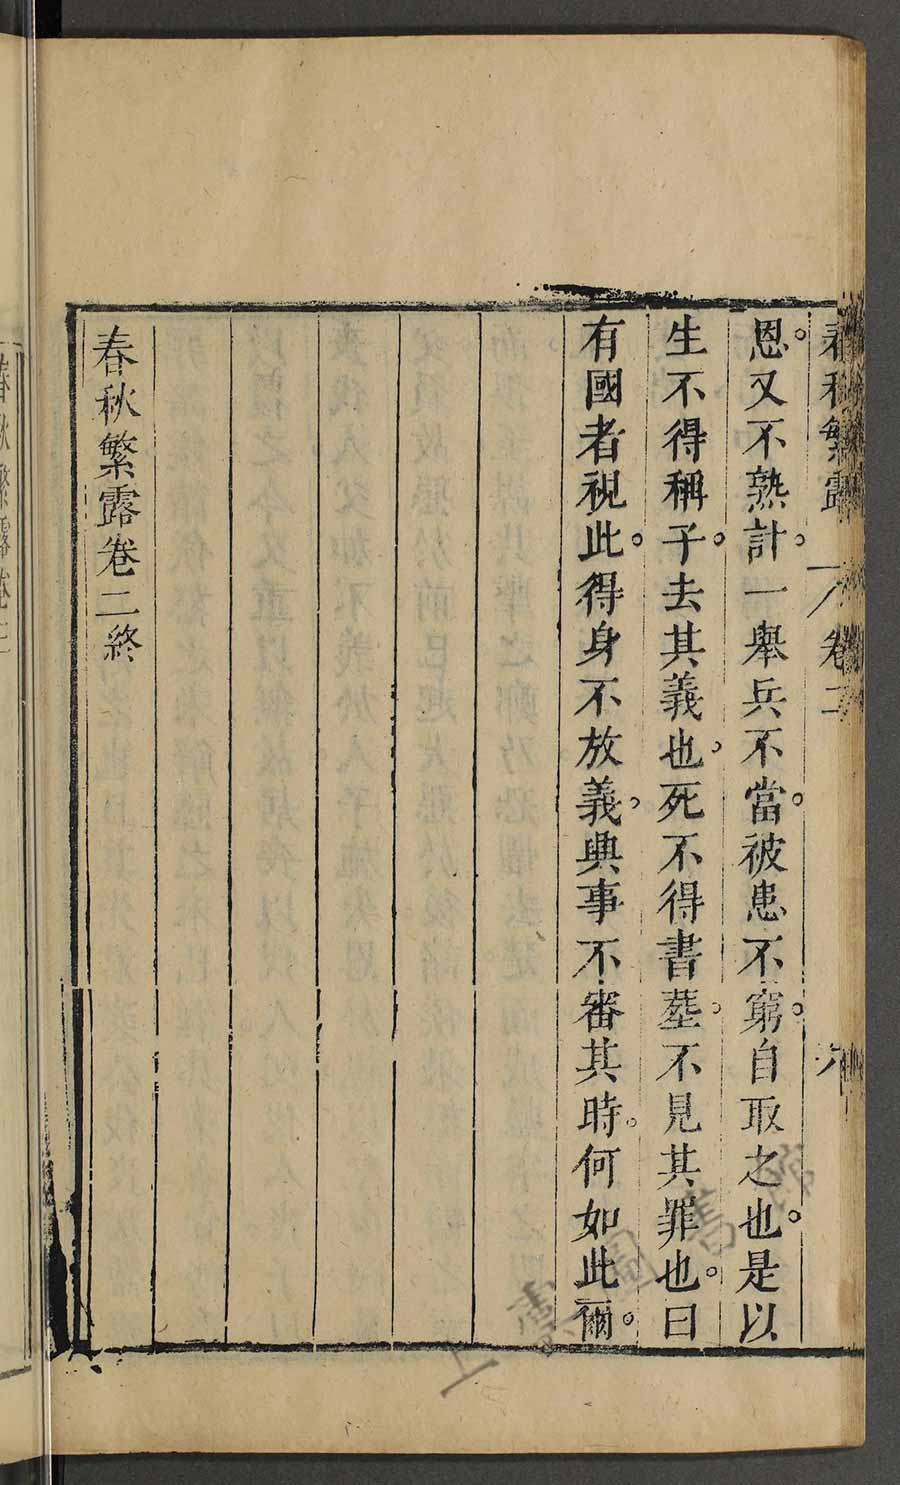 春秋繁露 卷二 六
恩。又不熟計。一舉兵不當。被患不窮。自取之也。是以
生不得稱子。去其義也。死不得書葬。不見其罪也。曰
有國者視此。得身不放義。興事不審其時。何如此爾。
春秋繁露卷二終